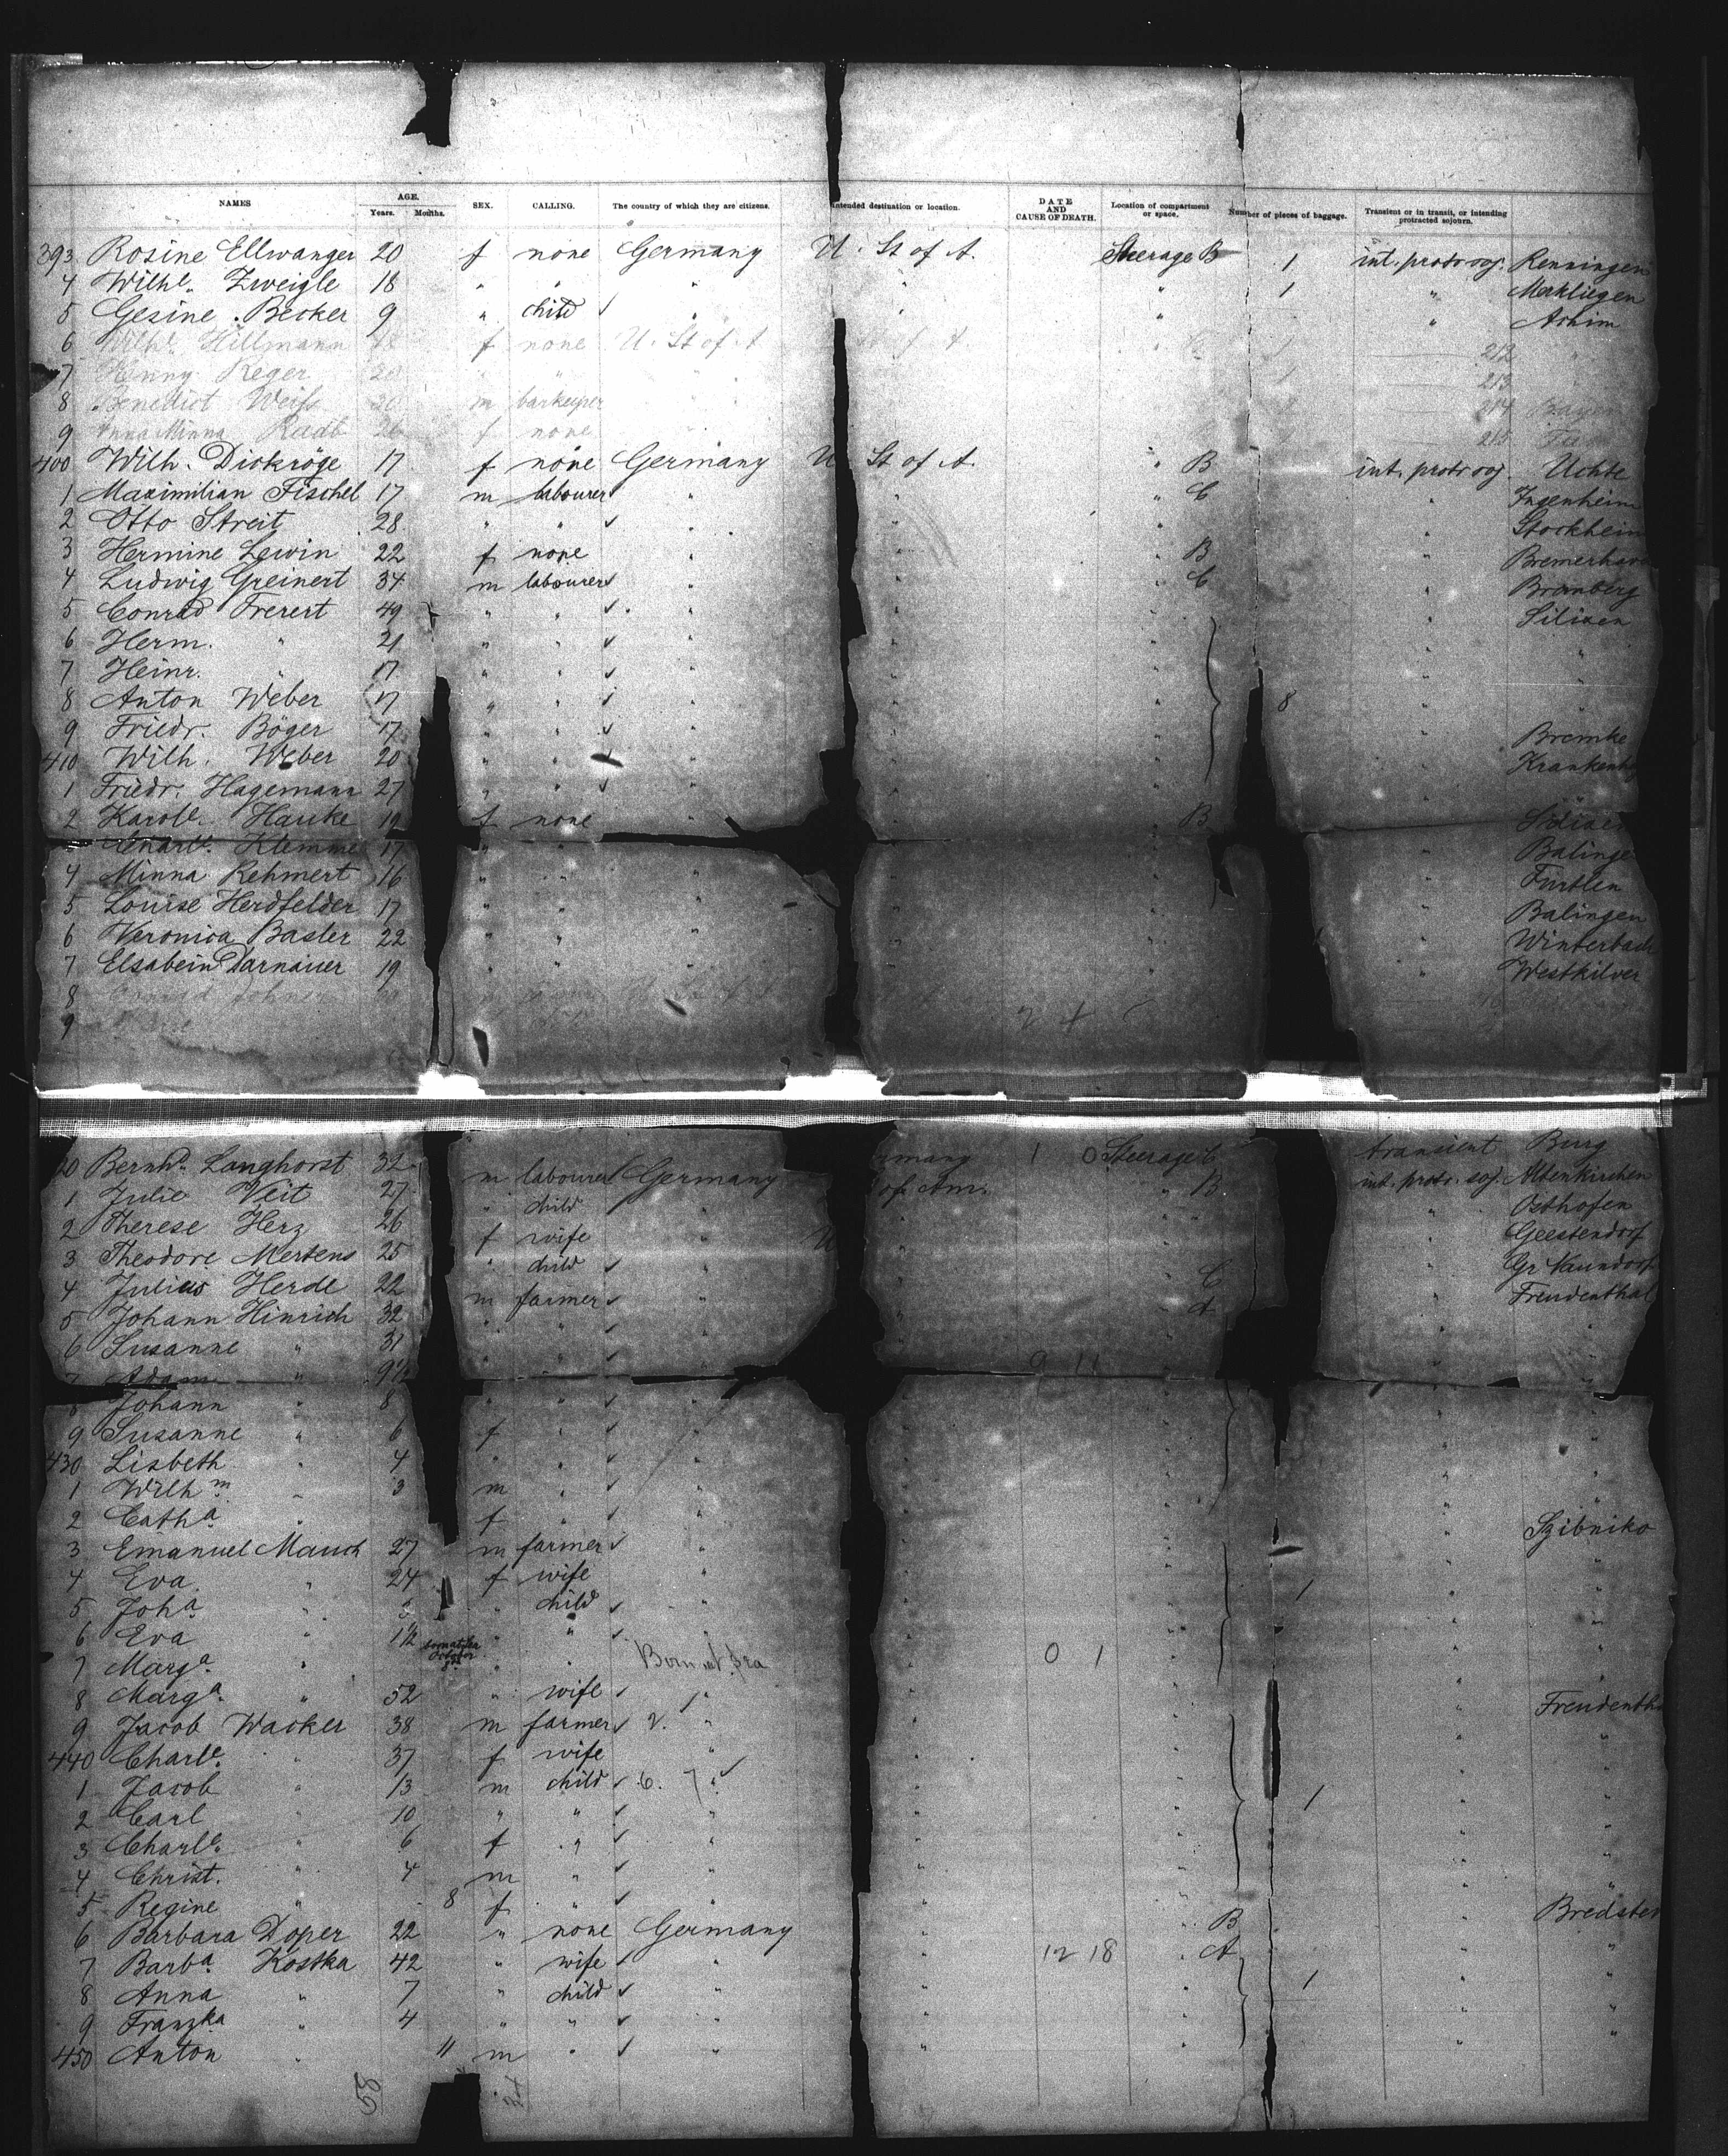 NAMES AGE. Years. Months. SEX. CALLING. The country of which they are citizens. Intended destination or location. DATE AND CAUSE OF DEATH. Location of compartment or space. Number of pieces of baggage. Transient or in transit, or intending protracted sojourn.
393 Rosine Ellwanger 20 f none Germany U. St of A. Steerage B 1 int. protr soj. Renningen
4 Wilhe. Zweigle 18 " " " " " 1 " Merkliegen
5 Gesine Becker 9 " child " " " " Achim
6 Wilhe. Hillmann f none U. St of A 1 212
7 Henny Reger 20 1 213
8 Benedict Weiss 30 m barkeeper 214
9 Anna Minna Radb f none 215
400 Wilh. Diokröge 17 f none Germany U St of A. " B int. protr soj. Uchte
1 Maximilian Fischel 17 m labourer " " " C " Ingenheim
2 Otto Streit 28 " " " " " " Stockheim
3 Hermine Lewin 22 f none " " " B " Bremerhave
4 Ludwig Greinert 34 m labourer " " " C " Bromberg
5 Conrad Frerert 49 " " " " " " Silixen
6 Herm. " 21 " " " " " " "
7 Heinr. " 17 " " " " " " "
8 Anton Weber 17 " " " " " 8 " "
9 Friedr. Böger 17 " " " " " " Bremke
410 Wilh. Weber 20 " " " " " " Krankenh
1 Friedr. Hagemann 27 " " " " " "
2 Karole. Hauke 19 f none " " " B " Silixen
Charle. Klemme 17 " " " " " " Balinge
4 Minna Rehmert 16 " " " " " " Furtlen
5 Louise Herdfelder 17 " " " " " " Balingen
6 Veronica Basler 22 " " " " " " Winterbach
7 Elsabein Darnauer 19 " " " " " " Westkilver
8 Conrad Johner
9
20 Bernhd. Langhorst 32 m labourer Germany rmany 1 0 Steerage C transient Burg
1 Julie Veit 27 " child " of Am. " B int. protr. soj. Altenkirchen
2 Therese Herz 26 f wife " U " " Osthofen
3 Theodore Mertens 25 " child " " " Geestendorf
4 Julius Herde 22 m farmer " " C " Gr Naundorf
5 Johann Hinrich 32 " " " " " A " Freudenthal
6 Susanne " 31 " " " "
7 Adam " 9½ 9 11
8 Johann " 8 " " " " " " "
9 Susanne " 6 f " " " " " "
430 Lisbeth " 4 " " " " " " "
1 Wilhm. " 3 m " " " " " "
2 Catha. " f " " " " "
3 Emanuel Mauch 27 m farmer " " " " Szibniko
4 Eva " 24 f wife " " " 1 " "
5 Joha. " 3 " child " " " " "
6 Eva " 1½ " " " " "
7 Marga. " October " " Born at Sea 0 1
8 Marga. " 52 " wife " " " " "
9 Jacob Wacker 38 m farmer 2. " " " " Freudentha
440 Charle. " 37 f wife " " " " "
1 Jacob " 13 m child 6. 7 " " " 1 " "
2 Carl " 10 " " " " " " "
3 Charle. " 6 f " " " " " "
4 Christ. " 4 m " " " " " "
5 Regine " 8 f " " " " " "
6 Barbara Doper 22 " none Germany " " B " Bredste
7 Barba. Kostka 42 " wife " " 12 18 " A " "
8 Anna " 7 " child " " " 1 " "
9 Franzka " 4 " " " " " " "
450 Anton " 11 m " " " " " "
58 24